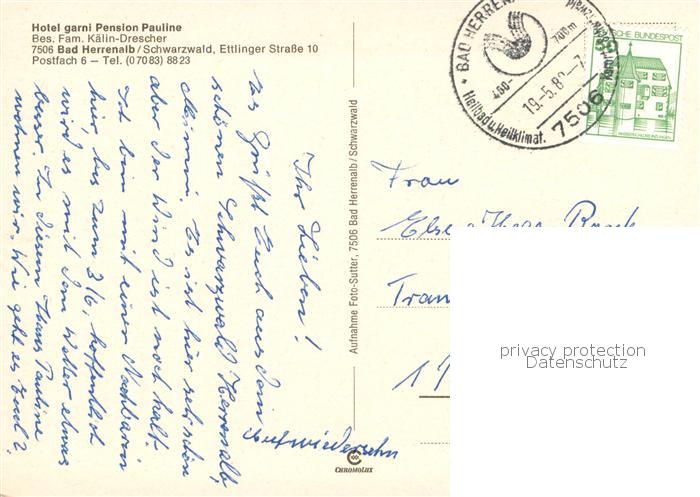 Hotel garni Pension Pauline
Bes. Fam. Kälin-Drescher
7506 Bad Herrenalb/Schwarzwald, Ettlinger Straße 10
Postfach 6 – Tel. (07083) 8823
Ihr Lieben!
Es grüßt Euch aus dem
schönen Schwarzwald Herrenalb,
Mimmi. Es ist hier sehr schön
aber der Wind ist noch kalt.
Ich bin mit einer Nachbarin
hier, bis zum 3/6, hoffentlich
wird es mit dem Wetter etwas
besser. In diesem Haus Pauline
wohnen wir. Wie geht es Euch?
Aufwiedersehn
Aufnahme Foto-Sutter, 7506 Bad Herrenalb/Schwarzwald
CHROMOLUX
BAD HERRENA
400-
700m
19.-5.80-7
Heilbad u. Heilklimat.
7506
SCHE BUNDESPOST
Frau
Else
Tran
17
privacy protection
Datenschutz